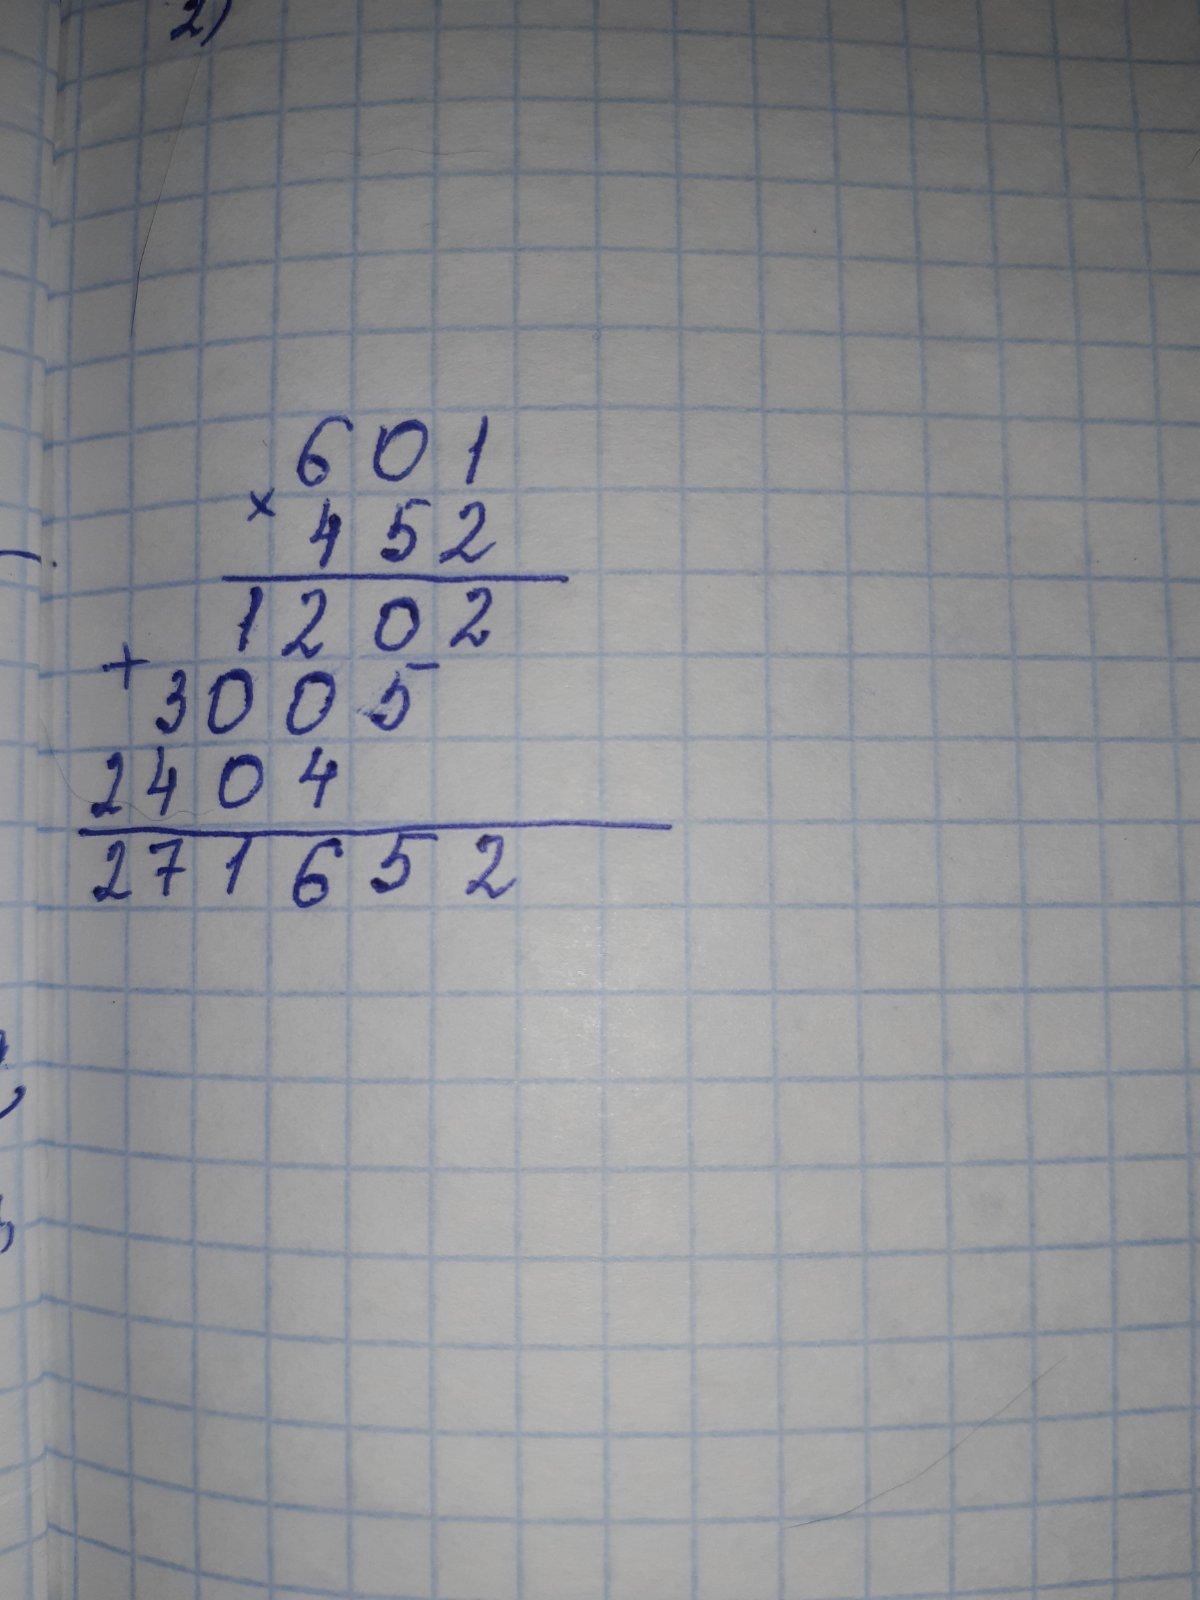 2)
601
× 452
1202
+ 3005
2404
271652